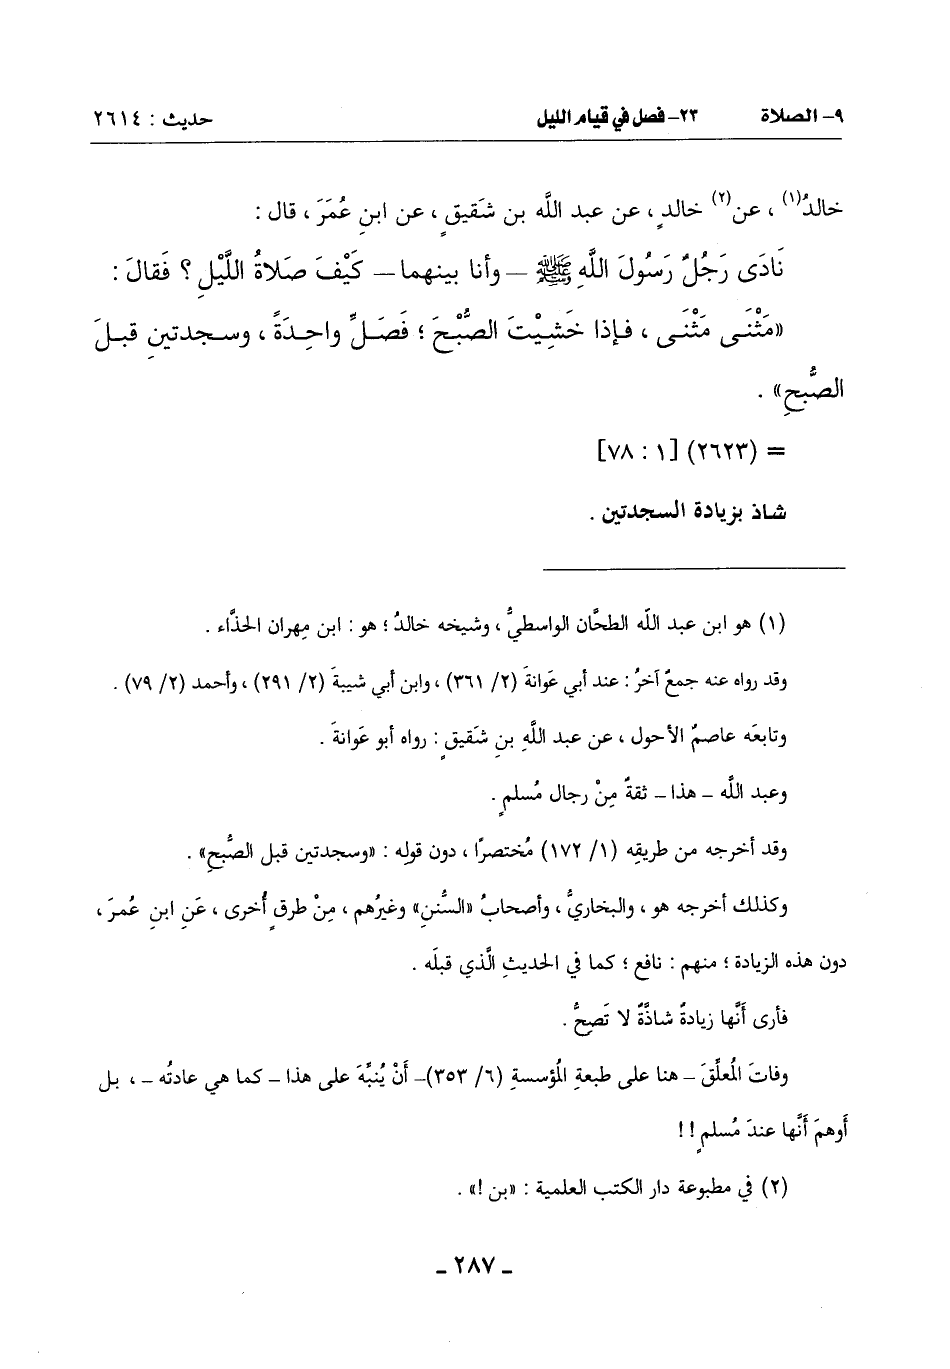 ٩- الصلاة ٢٣- فصل في قيام الليل حديث : ٢٦١٤
خالدُ(١) ، عن(٢) خالدٍ ، عن عبد الله بن شَقيقٍ ، عن ابنِ عُمَرَ ، قال :
نَادَى رَجُلٌ رَسُولَ اللَّهِ ﷺ – وأنا بينهما – كَيْفَ صَلاةُ اللَّيْلِ ؟ فَقالَ :
«مَثْنَى مَثْنَى ، فإذا خَشِيْتَ الصُّبْحَ ؛ فَصَلِّ واحِدَةً ، وسجدتينِ قبلَ
الصُّبحِ» .
= (٢٦٢٣) [١ : ٧٨]
شاذ بزيادة السجدتين .
(١) هو ابن عبد الله الطحَّان الواسطيُّ ، وشيخه خالدٌ ؛ هو : ابن مِهران الحذَّاء .
وقد رواه عنه جمعٌ آخرُ : عند أبي عَوانةَ (٢/ ٣٦١) ، وابن أبي شيبةَ (٢/ ٢٩١) ، وأحمد (٢/ ٧٩) .
وتابعَه عاصمٌ الأحول ، عن عبد اللَّهِ بنِ شَقيقٍ : رواه أبو عَوانةَ .
وعبد اللَّه – هذا – ثقةٌ مِنْ رجال مُسلمٍ .
وقد أخرجه من طريقِه (١/ ١٧٢) مُختصرًا ، دون قوله : «وسجدتين قبل الصُّبحِ» .
وكذلك أخرجه هو ، والبخاريُّ ، وأصحابُ «السُّننِ» وغيرُهم ، مِنْ طرقٍ أُخرى ، عَنِ ابنِ عُمرَ ،
دون هذه الزيادة ؛ منهم : نافع ؛ كما في الحديثِ الَّذي قبلَه .
فأرى أنَّها زيادةٌ شاذَّةٌ لا تَصحُّ .
وفاتَ المُعلِّقَ – هنا على طبعةِ المُؤسسةِ (٦/ ٣٥٣)– أنْ يُنبِّهَ على هذا – كما هي عادتُه – ، بل
أوهمَ أنَّها عندَ مُسلمٍ !!
(٢) في مطبوعة دار الكتب العلمية : «بن !» .
– ٢٨٧ –